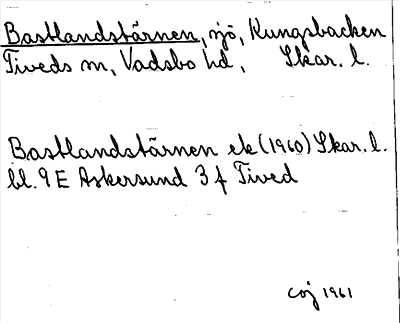 Bastlandstärnen, sjö, Kungsbacken
Tiveds sn, Vadsbo hd, Skar. l.
Bastlandstärnen ek (1960) Skar. l.
bl. 9E Askersund 3 f Tived
CoJ 1961